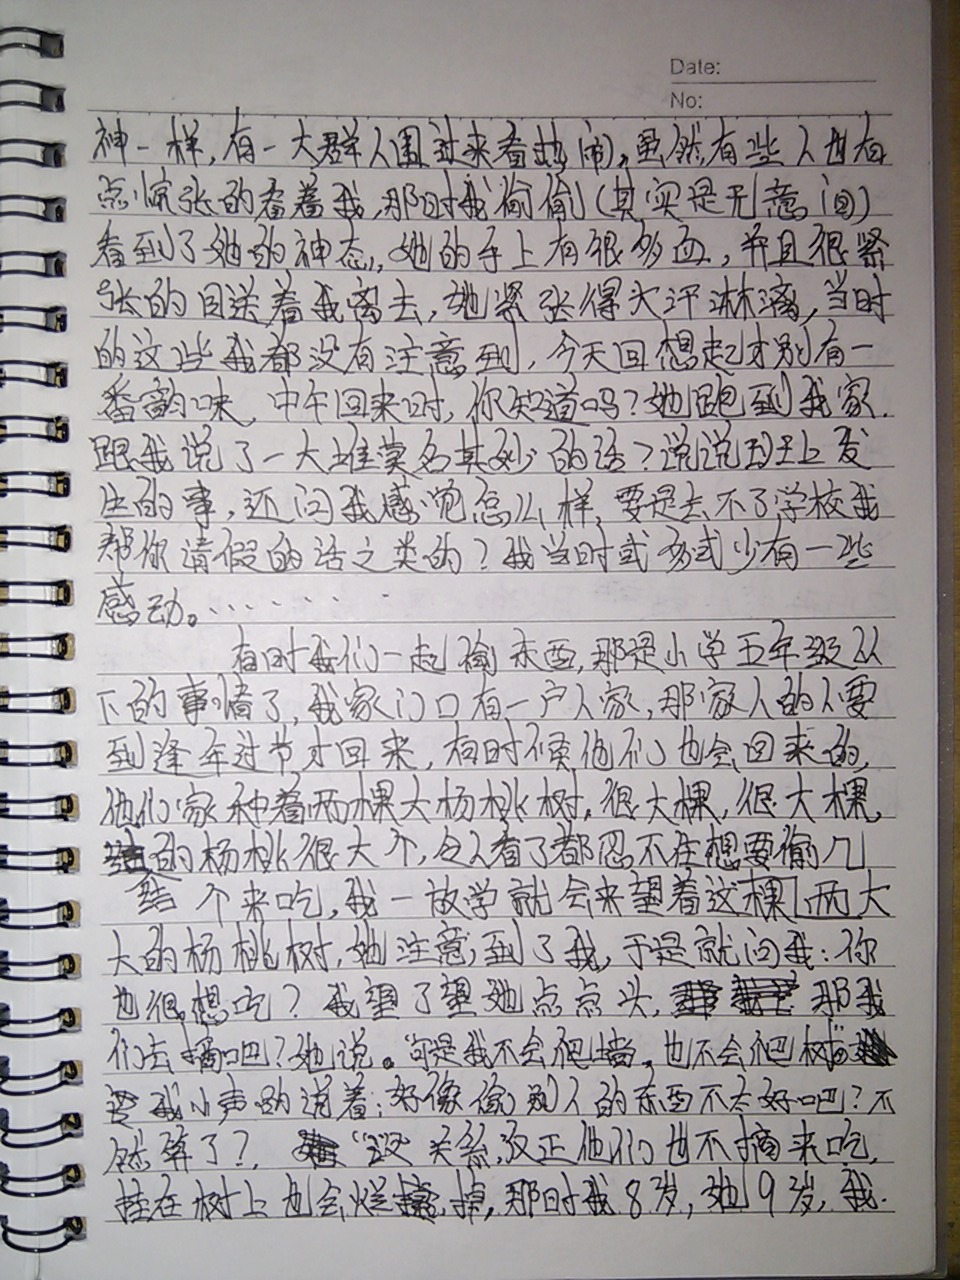 Date:
No:
神一样,有一大群人围过来看热闹,虽然有些人也有
点惊张的看着我,那时我偷偷(其实是无意间)
看到了她的神态,她的手上有很多血,并且很紧
张的目送着我离去,她紧张得大汗淋漓,当时
的这些我都没有注意到,今天回想起才别有一
番韵味,中午回来时,你知道吗?她跑到我家.
跟我说了一大堆莫名其妙的话?说说到早上发
生的事,还问我感觉怎么样,要是去不了学校我
帮你请假的话之类的?我当时或多或少有一些
感动。......
有时我们一起偷东西,那是小学五年级以
下的事情了,我家门口有一户人家,那家人的人要
到逢年过节才回来,有时候他们也会回来的,
他们家种着两棵大杨桃树,很大棵,很大棵,
的杨桃很大个,令人看了都忍不住想要偷几
结 个来吃,我一放学就会来望着这棵两大
大的杨桃树,她注意到了我,于是就问我:你
也很想吃?我望了望她点点头, 那我
们去摘吧?她说。可是我不会爬墙,也不会爬树"
我小声的说着:好像偷别人的东西不太好吧?不
然算了?, "没关系,反正他们也不摘来吃,
挂在树上也会烂掉,那时我8岁,她9岁,我.